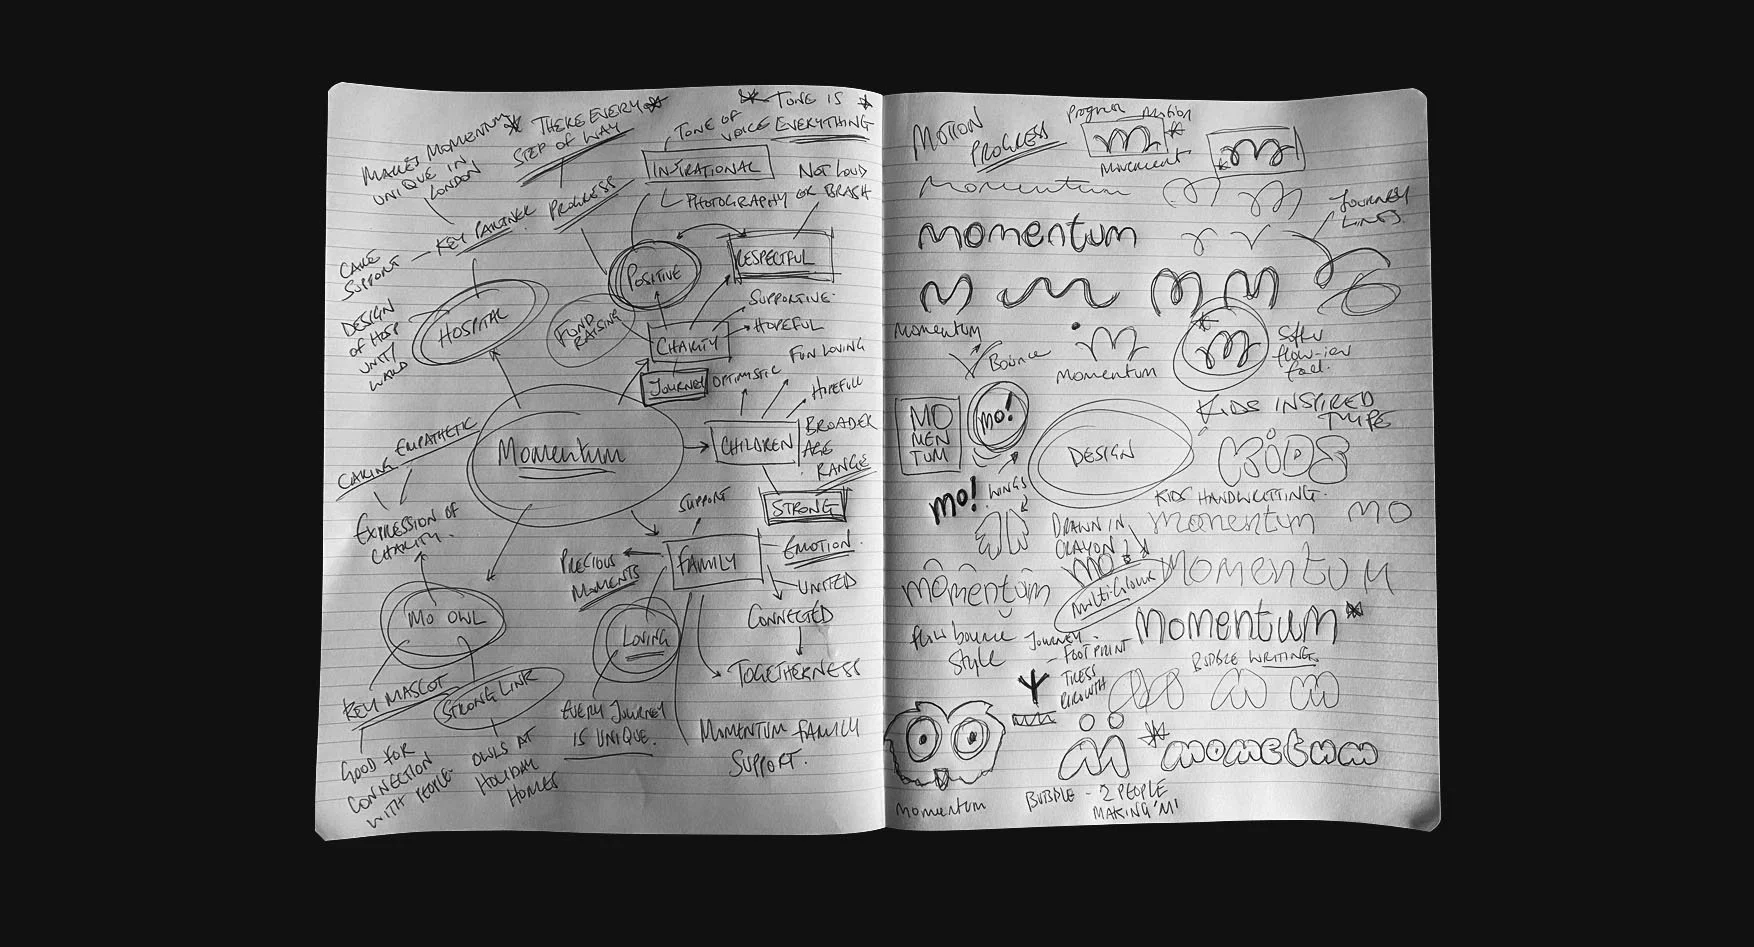 MAKES MOMENTUM
UNIQUE IN
LONDON
THERE EVERY
STEP OF WAY
TONE IS
TONE OF
VOICE EVERYTHING
INSPIRATIONAL
PHOTOGRAPHY
NOT LOUD
OR BRASH
KEY PARTNER
PROGRESS
CARE
SUPPORT
DESIGN
OF HOSP
UNIT/
WARD
HOSPITAL
FUND
RAISING
POSITIVE
RESPECTFUL
SUPPORTIVE
HOPEFUL
CHARITY
JOURNEY
OPTIMISTIC
FUN LOVING
HOPEFULL
Momentum
CHILDREN
BROADER
AGE
RANGE
STRONG
CARING
EMPATHETIC
EXPRESSION OF
CHARITY.
MO OWL
KEY MASCOT
STRONG LINK
GOOD FOR
CONNECTION
WITH PEOPLE
OWLS AT
HOLIDAY
HOMES
SUPPORT
FAMILY
PRECIOUS
MOMENTS
EMOTION
UNITED
CONNECTED
TOGETHERNESS
LOVING
EVERY JOURNEY
IS UNIQUE.
MOMENTUM FAMILY
SUPPORT.
MOTION
PROGRESS
Progress Motion
m
Movement
m
momentum
JOURNEY
LINES.
momentum
m
m
m
Momentum
Bounce
m
Momentum
m
Softer
flow-ier
feel.
MO
MEN
TUM
mo!
mo!
WINGS
DESIGN
KIDS INSPIRED
TYPE
KIDS
KIDS HANDWRITTING.
momentum MO
DRAWN IN
CRAYON?
MO
MULTI-COLOUR
Momentum
momentum
flow bounce
style
JOURNEY.
- FOOTPRINT
TREES
GROWTH
Momentum
BUBBLE WRITING
m m
momentum
BUBBLE - 2 PEOPLE
MAKING 'M'
mometum